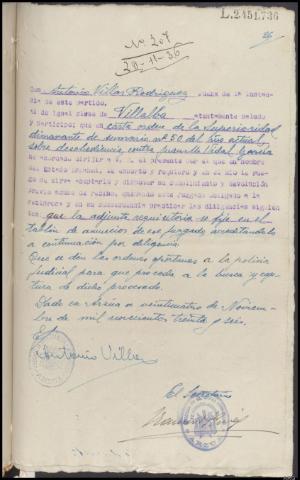 L.2451.736
26
Nº 207
29-11-36
Don Antonio Villar Rodriguez Juez de la Instan-
cia de este partido.
Al de igual clase de Villalba atentamente saludo
y participo: que en carta orden de la Superioridad
dimanante de sumario nº 52 del año actual
sobre desobediencia contra Vidal García
he acordado dirigir a V. S. el presente por el que en nombre
del Estado Español, le exhorto y requiero y en el mio le rue-
go se sirva aceptarlo y disponer su cumplimiento y devolución
recíproco y en su consecuencia practicar las diligencias siguien
tes, que la adjunta requisitoria se fije en el
tablón de anuncios de ese Juzgado acreditándolo
a continuación por diligencia.
Que se den las ordenes oportunas a la policía
Judicial para que proceda a la busca y cap-
tura de dicho procesado.
Dado en Arzúa a veinticuatro de Noviem-
bre de mil novecientos treinta y seis.
Antonio Villar
El Secretario